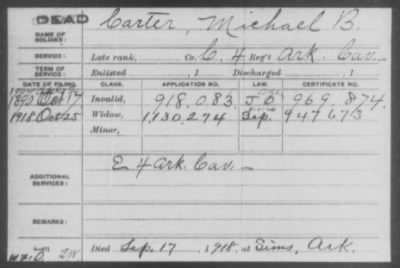 DEAD
Carter, Michael B.
NAME OF SOLDIER:
SERVICE: Late rank, Co. C, 4 Reg't Ark. Cav.
TERM OF SERVICE: Enlisted , 1 Discharged , 1
DATE OF FILING. CLASS. APPLICATION NO. LAW. CERTIFICATE NO.
1890 Oct 17 Invalid, 918.083 969.874.
1918 Oct 25 Widow, 1130.274 Sep. 947673
Minor,
ADDITIONAL SERVICES: E 4 Ark. Cav.
REMARKS:
Died Sep. 17, 1918, at Sims, Ark.